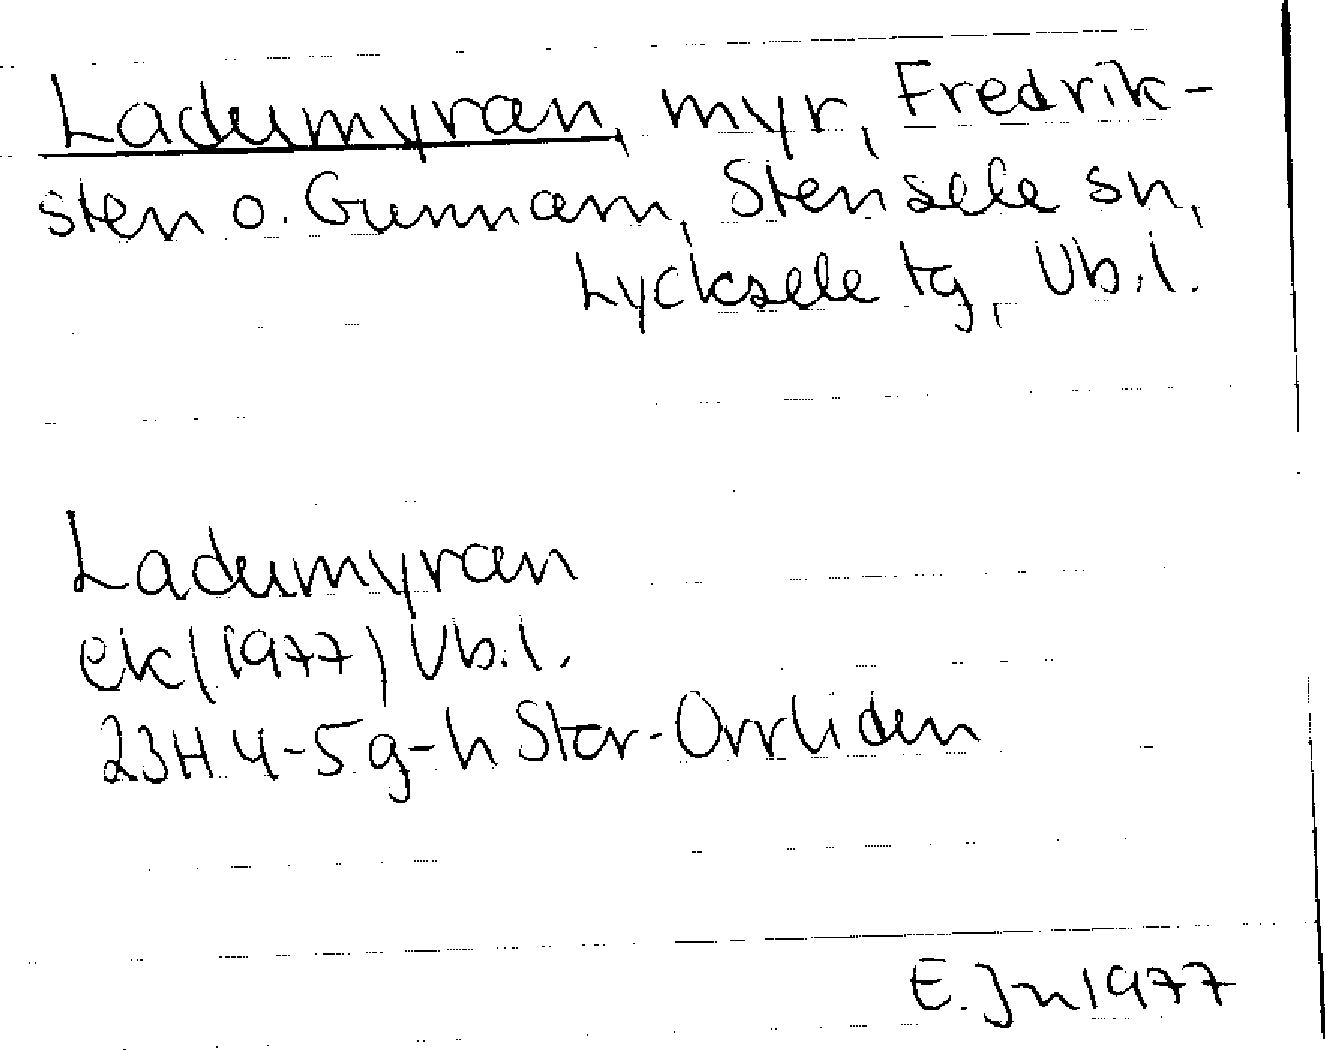 Ladumyran, myr, Fredrik-
sten o. Gunnarn, Stensele sn,
Lycksele tg, Vb.l.
Ladumyran
ek (1977) Vb.l.
23H 4-5 g-h Stor-Orrliden
E. Jn 1977